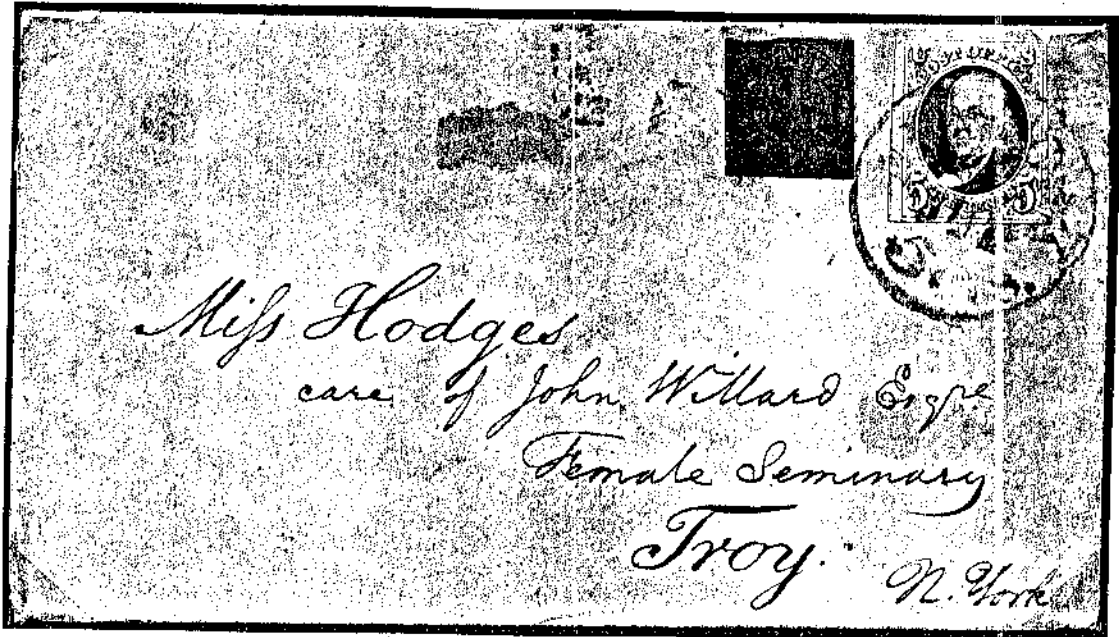 5 5
Miſs Hodges
care of John Willard Esqre
Female Seminary
Troy.
N. York